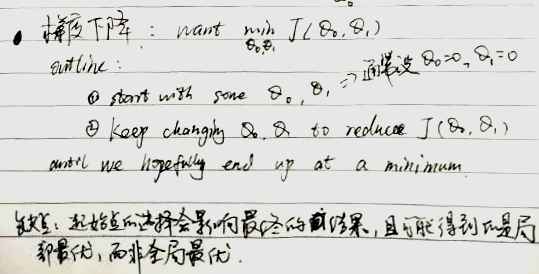 • 梯度下降: want min J(θ₀, θ₁)
θ₀,θ₁
outline:
① start with some θ₀, θ₁ => 通常设 θ₀=0, θ₁=0
② keep changing θ₀, θ₁ to reduce J(θ₀, θ₁)
until we hopefully end up at a minimum.
缺点: 起始点的选择会影响最终的结果, 且可能得到的是局
部最优, 而非全局最优.